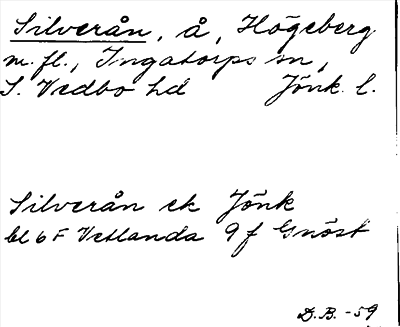 Silverån, å, Högeberg
m.fl., Ingatorps sn,
S. Vedbo hd Jönk. l.
Silverån ek Jönk
bl 6 F Vetlanda 9 f Gnöst
D.B. -59